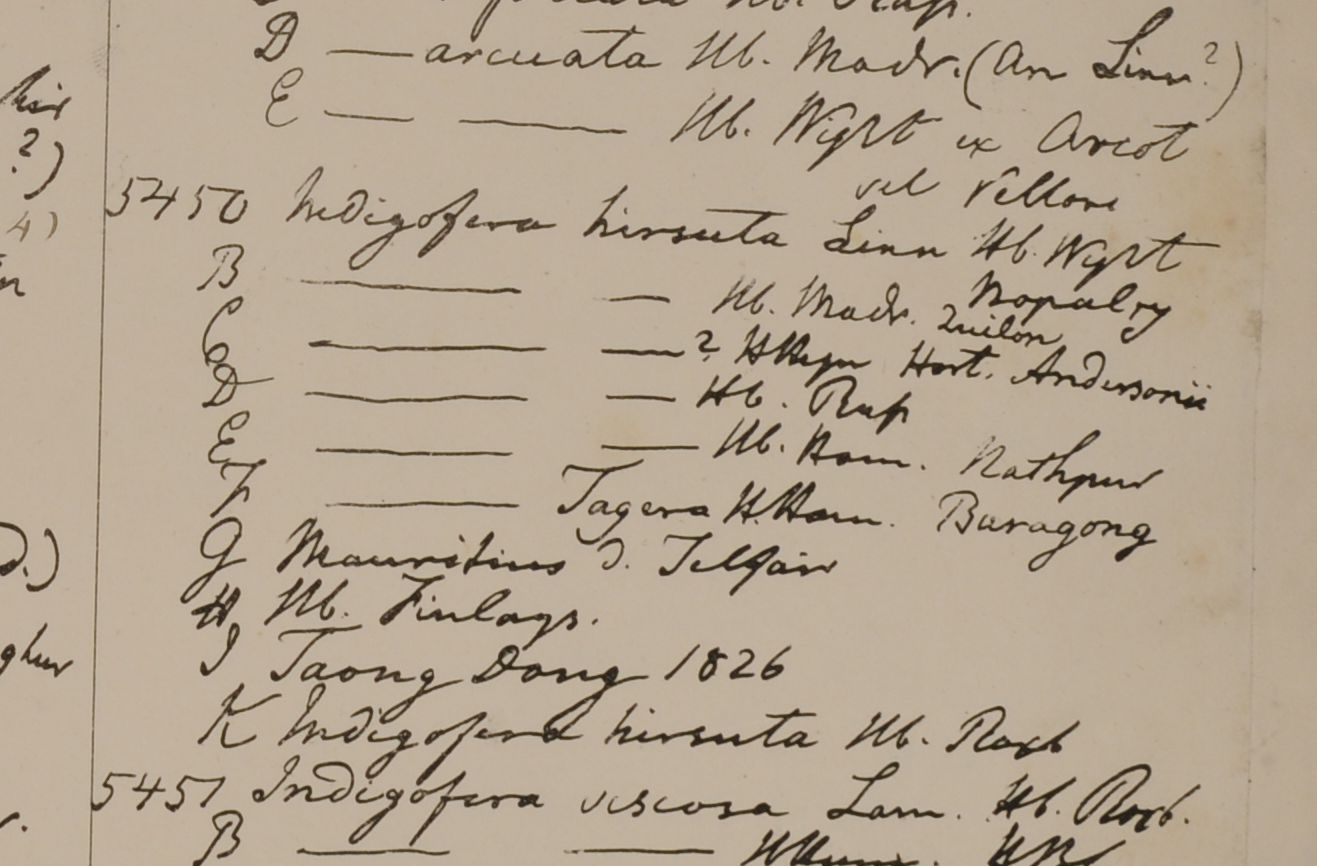 D — arcuata Hb. Madr. (an Linn?)
E — — Hb. Wight ex Arcot
vel Vellore
5450 Indigofera hirsuta Linn Hb. Wight
B — — Hb. Madr. Nopalry
C — — ? HHeyn Hort. Andersonii
Quilon
D — — Hb. Rup
E — — Hb. Ham. Nathpur
F — Tagera H.Ham. Buragong
G Mauritius D. Telfair
H Hb. Finlays.
I Taong Dong 1826
K Indigofera hirsuta Hb. Roxb
5451 Indigofera viscosa Lam. Hb. Roxb.
B — —